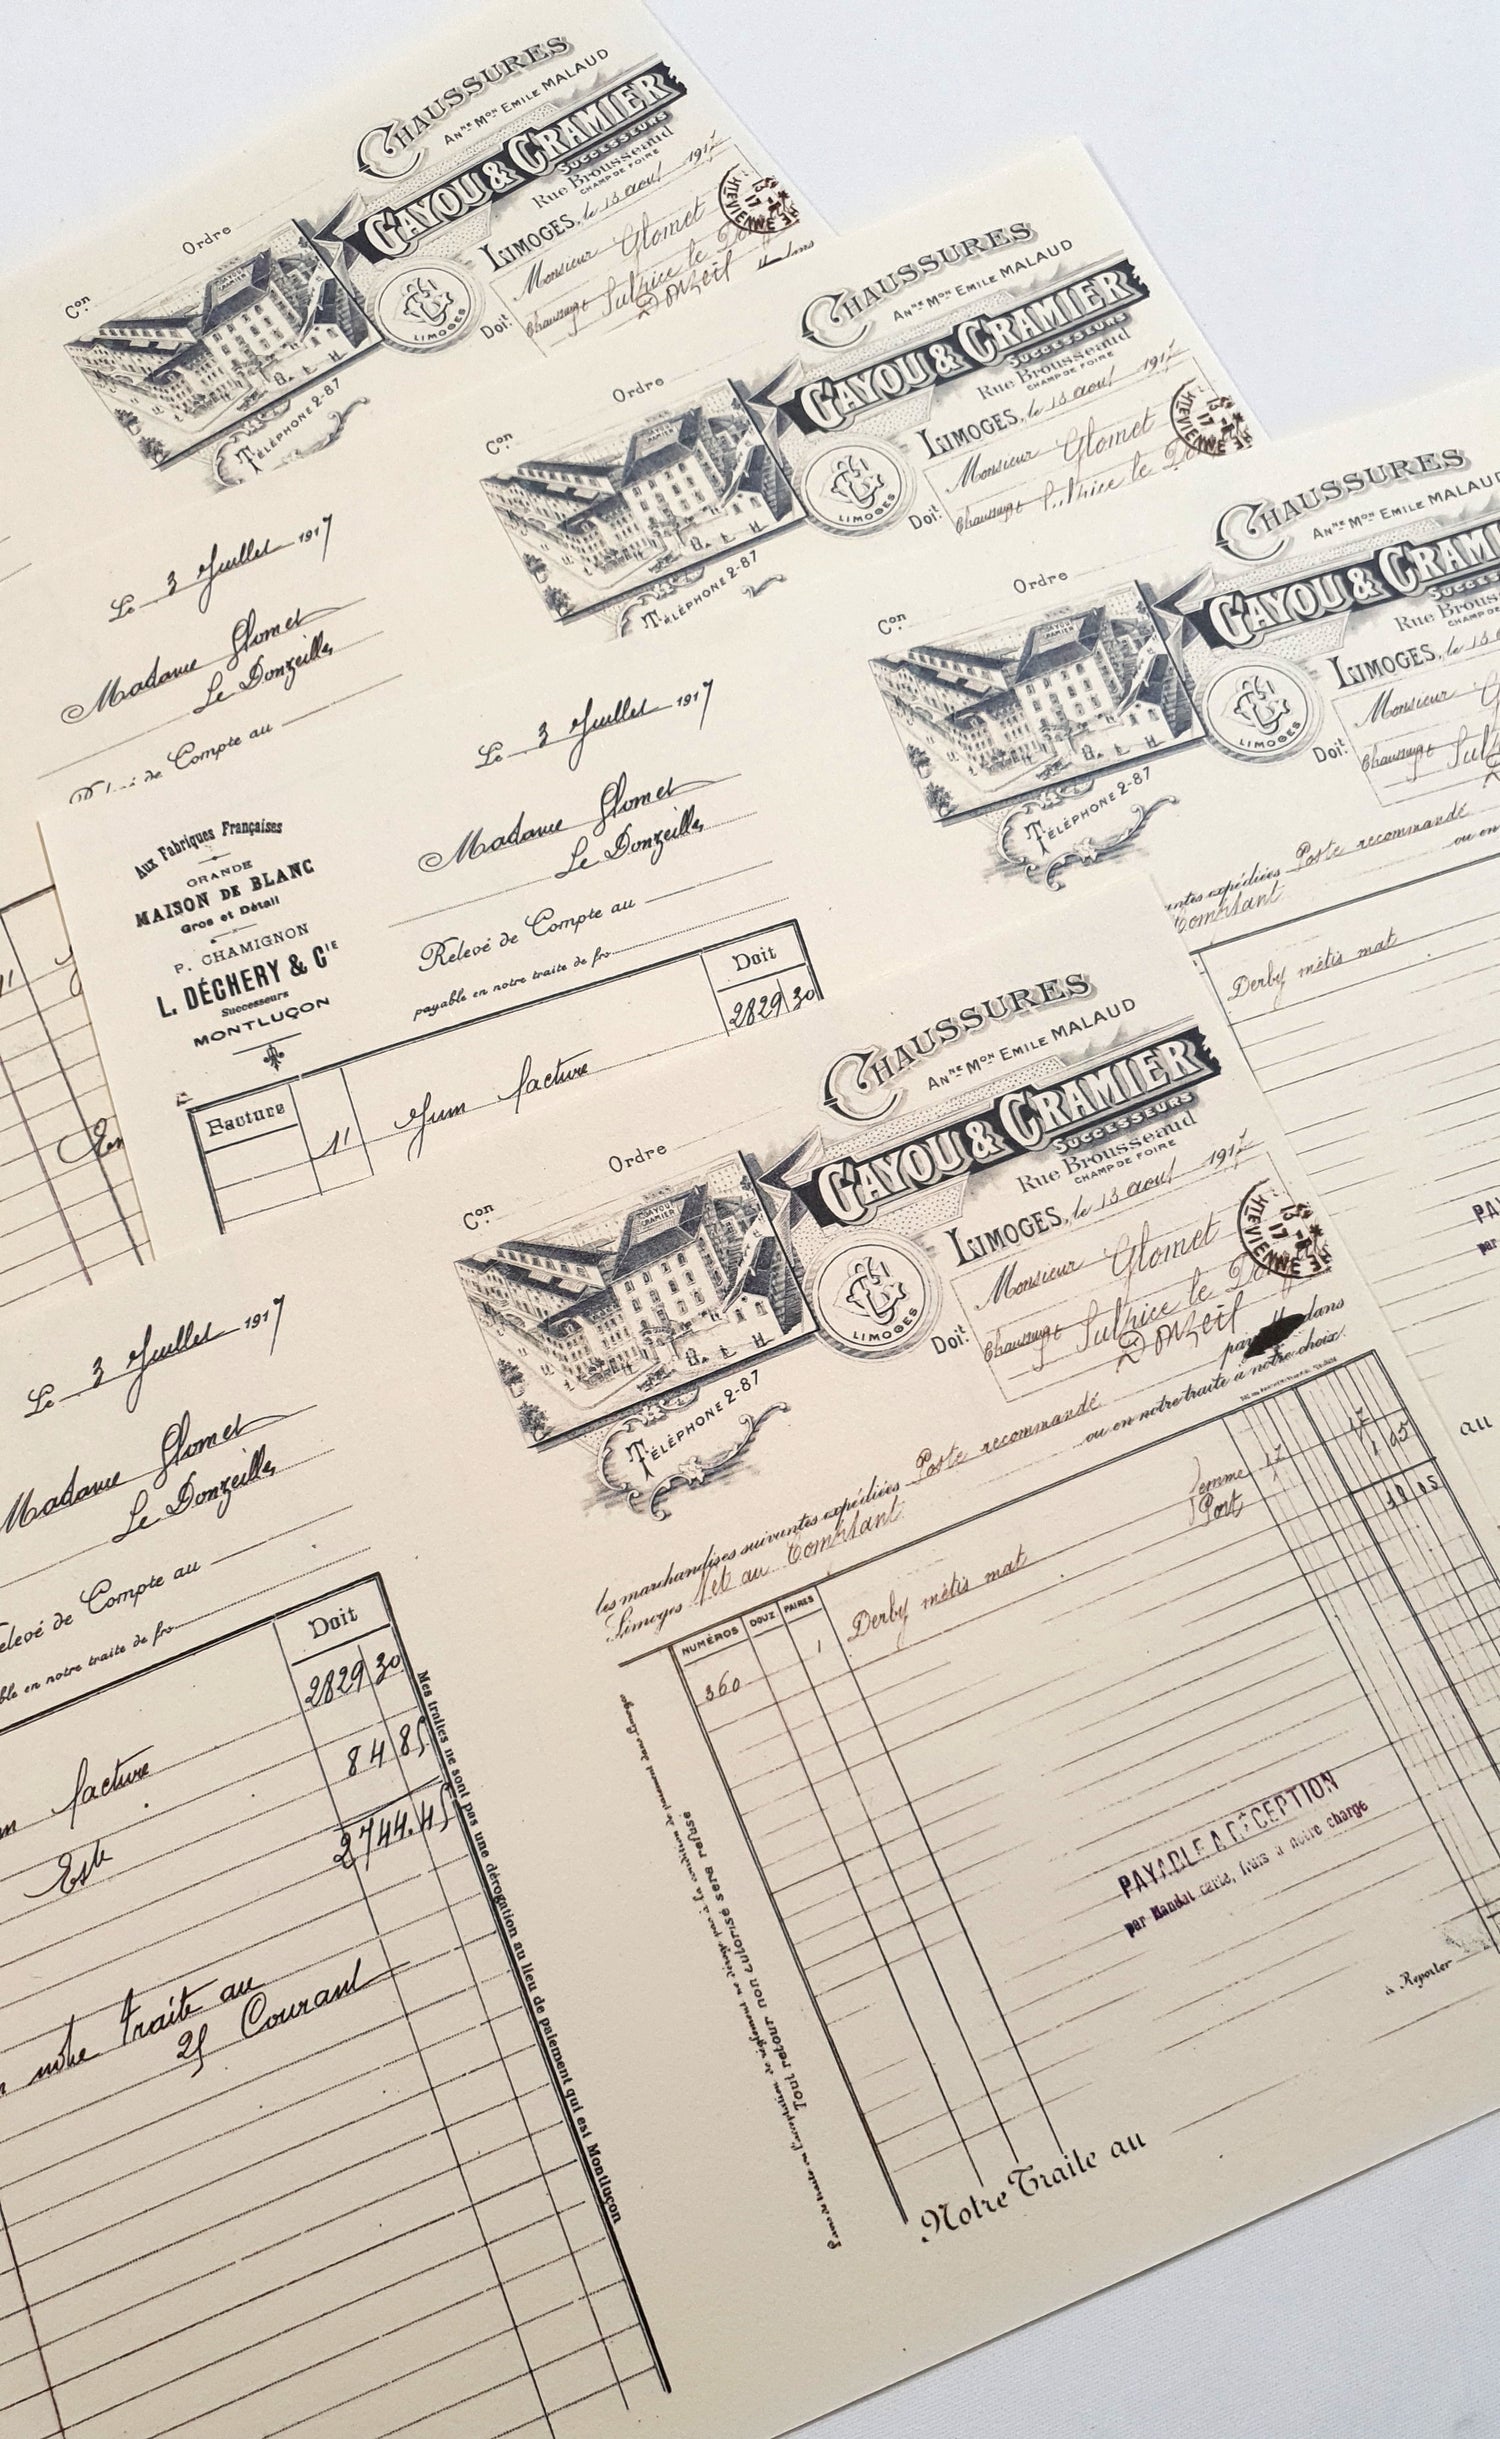 CHAUSSURES
ANNE MON EMILE MALAUD
GAYOU & CRAMIER
SUCCESSEURS
Rue Brousseaud
CHAMP DE FOIRE
Ordre
Con
LIMOGES, le 13 août 1917
Monsieur Glomet
Doit
LIMOGES
TÉLÉPHONE 2-87
HTE VIENNE
Le 3 Juillet 1917
Madame Glomet
Le Donzeille
de Compte au
CHAUSSURES
ANNE MON EMILE MALAUD
GAYOU & CRAMIER
SUCCESSEURS
Rue Brousseaud
CHAMP DE FOIRE
Ordre
Con
LIMOGES, le 13 août 1917
Monsieur Glomet
Doit
LIMOGES
TÉLÉPHONE 2-87
HTE VIENNE
Le 3 Juillet 1917
Madame Glomet
Le Donzeille
Relevé de Compte au
payable en notre traite de frs
Aux Fabriques Françaises
GRANDE
MAISON DE BLANC
Gros et Détail
P. CHAMIGNON
L. DÉCHERY & CIE
Successeurs
MONTLUÇON
Doit
2829 30
Facture
11 Juin facture
CHAUSSURES
ANNE MON EMILE MALAUD
GAYOU & CRAM
Rue Brouss
Ordre
Con
LIMOGES, le 13
Monsieur
Doit
GAYOU
CRAMIER
LIMOGES
TÉLÉPHONE 2-87
antes expédiées Poste recommandé
ou en
Comptant
Derby métis mat
PA
par
au
CHAUSSURES
ANNE MON EMILE MALAUD
GAYOU & CRAMIER
SUCCESSEURS
Rue Brousseaud
CHAMP DE FOIRE
Ordre
Con
LIMOGES, le 13 août 1917
Monsieur Glomet
Doit
Donzeil
GAYOU
CRAMIER
LIMOGES
TÉLÉPHONE 2-87
HTE VIENNE
dans
les marchandises suivantes expédiées Poste recommandé
ou en notre traite à notre choix.
Limoges et au Comptant
NUMÉROS DOUZ PAIRES
360 1 Derby métis mat femme 17 17
Port 1 05
18 05
PAYABLE A RÉCEPTION
par Mandat carte, frais à notre charge
à Reporter
Tout retour non autorisé sera refusé
Notre Traite au
Le 3 Juillet 1917
Madame Glomet
Le Donzeille
Relevé de Compte au
ble en notre traite de frs
Doit
2829 30
facture
84 85
Esb
2744.45
notre traite au
25 Courant
Mes traites ne sont pas une dérogation au lieu de paiement qui est Montluçon